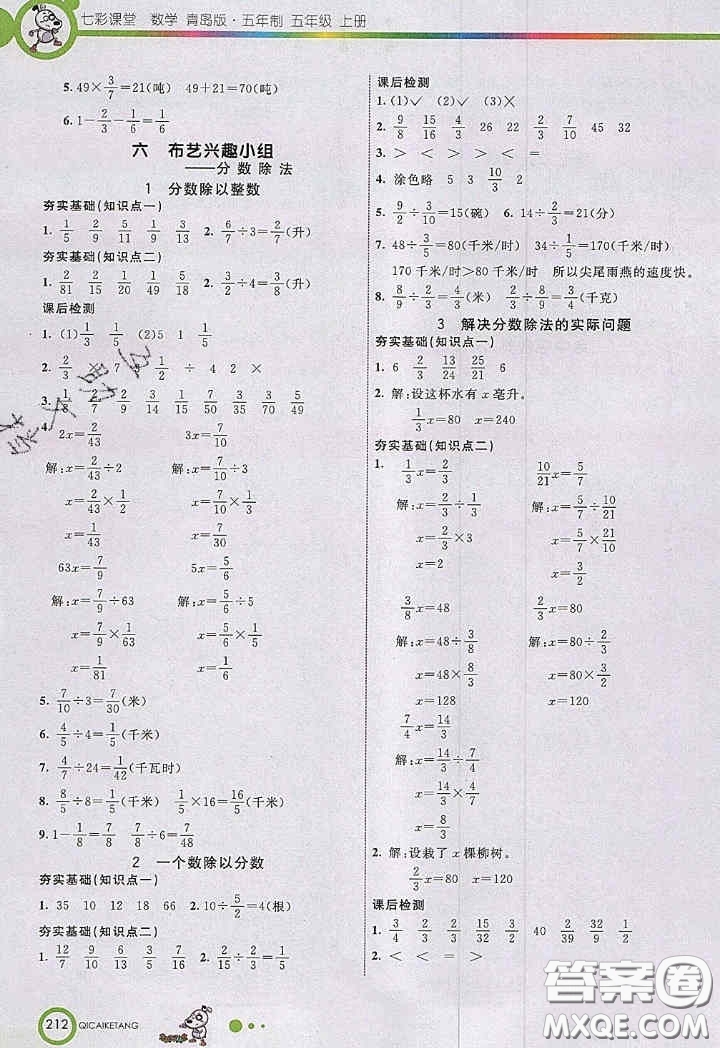 七彩课堂 数学 青岛版·五年制 五年级 上册
5. 49×3/7=21(吨) 49+21=70(吨)
6. 1-2/3-1/6=1/6
六 布艺兴趣小组
——分数除法
1 分数除以整数
夯实基础(知识点一)
1. 1/5 2/9 5/11 2/9 4/13 2. 6/7÷3=2/7(升)
夯实基础(知识点二)
1. 2/81 2/15 1/20 1/18 5/49 2. 2/3÷4=1/6(升)
课后检测
1. (1)1/3 (2)5 1 1/5
3. 1/8 2/7 2/27 3/40 1/15 3/35 3/70 5/49
4.
2x=2/43 3x=7/10
解:x=2/43÷2 解:x=7/10÷3
x=2/43×1/2 x=7/10×1/3
x=1/43 x=7/30
63x=7/9 5x=5/6
解:x=7/9÷63 解:x=5/6÷5
x=7/9×1/63 x=5/6×1/5
x=1/81 x=1/6
5. 7/10÷3=7/30(米)
6. 4/5÷4=1/5(千米)
7. 4/7÷24=1/42(千瓦时)
8. 8/5÷8=1/5(千米) 1/5×16=16/5(千米)
9. 1-1/8=7/8 7/8÷6=7/48
2 一个数除以分数
夯实基础(知识点一)
1. 35 10 12 18 66 2. 10÷5/2=4(根)
夯实基础(知识点二)
1. 12/7 9/10 16/5 13/7 2/15 2. 2/15÷2/3=1/5
课后检测
1. (1)✓ (2)✓ (3)×
2. 9/8 15/16 4/3 26 22 2/3 7/10 45 32
3. > < > > < >
4. 涂色略 5 3 10/3
5. 9/2÷3/10=15(碗) 6. 14÷2/3=21(分)
7. 48÷3/5=80(千米/时) 34÷1/5=170(千米/时)
170千米/时>80千米/时 所以尖尾雨燕的速度快。
8. 8/9÷2/3=4/3(米) 2/3÷8/9=3/4(千克)
3 解决分数除法的实际问题
夯实基础(知识点一)
1. 6 2/3 13/24 25/21 6
2. 解:设这杯水有x毫升。
1/3x=80 x=240
夯实基础(知识点二)
1. 1/3x=2/3 10/21x=5/7
解:x=2/3÷1/3 解:x=5/7÷10/21
x=2/3×3 x=5/7×21/10
x=2 x=3/2
3/8x=48 2/3x=80
解:x=48÷3/8 解:x=80÷2/3
x=48×8/3 x=80×3/2
x=128 x=120
7/4x=14/3
解:x=14/3÷7/4
x=14/3×4/7
x=8/3
2. 解:设栽了x棵柳树。
2/3x=80 x=120
课后检测
2. < < = >
212 QICAIKETANG
答案圈
MXQE.COM